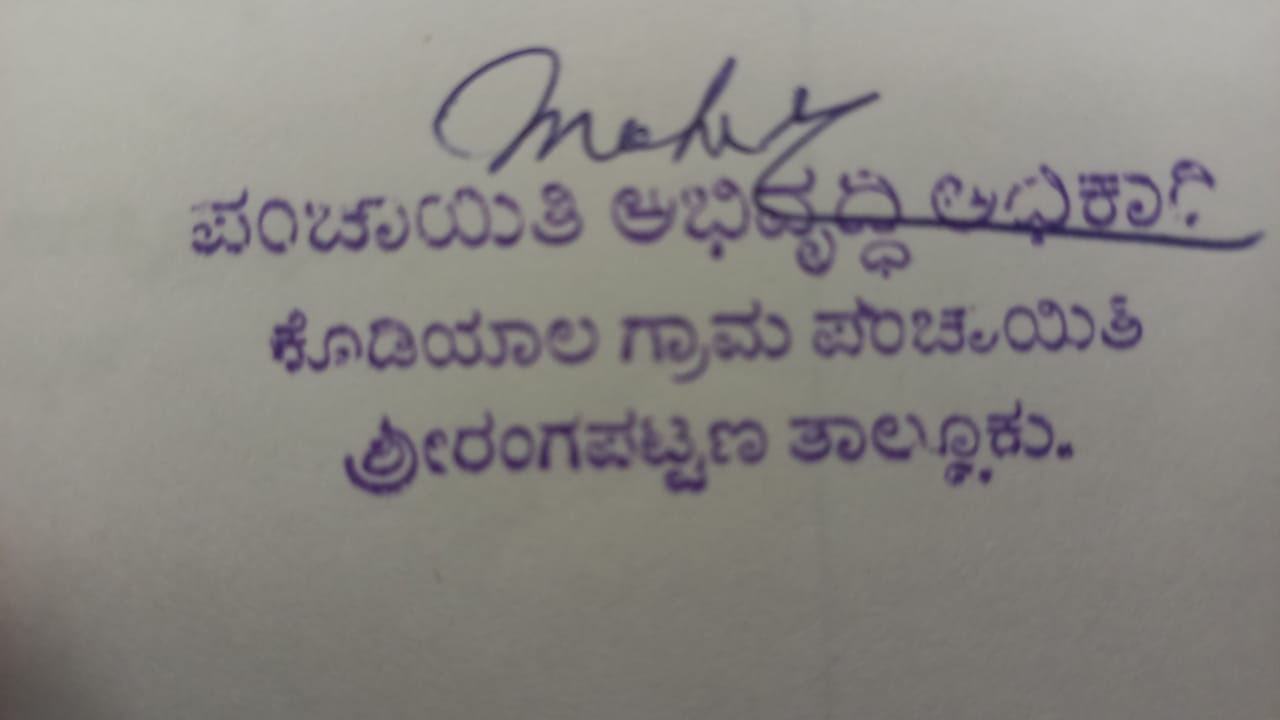 ಪಂಚಾಯಿತಿ ಅಭಿವೃದ್ಧಿ ಅಧಿಕಾರಿ
ಕೊಡಿಯಾಲ ಗ್ರಾಮ ಪಂಚಾಯಿತಿ
ಶ್ರೀರಂಗಪಟ್ಟಣ ತಾಲ್ಲೂಕು.